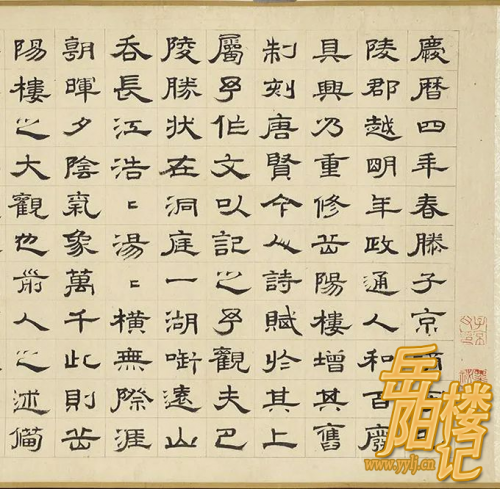 慶曆四年春滕子京
陵郡越朙年政通人和百廢
具興乃重修岳陽樓增其舊
制刻唐賢今人詩賦於其上
屬予作文以記之予觀夫巴
陵勝狀在洞庭一湖銜遠山
吞長江浩〻湯〻橫無際涯
朝暉夕陰氣象萬千此則岳
陽樓之大觀也前人之述備
岳阳楼记
www.yylj.cn